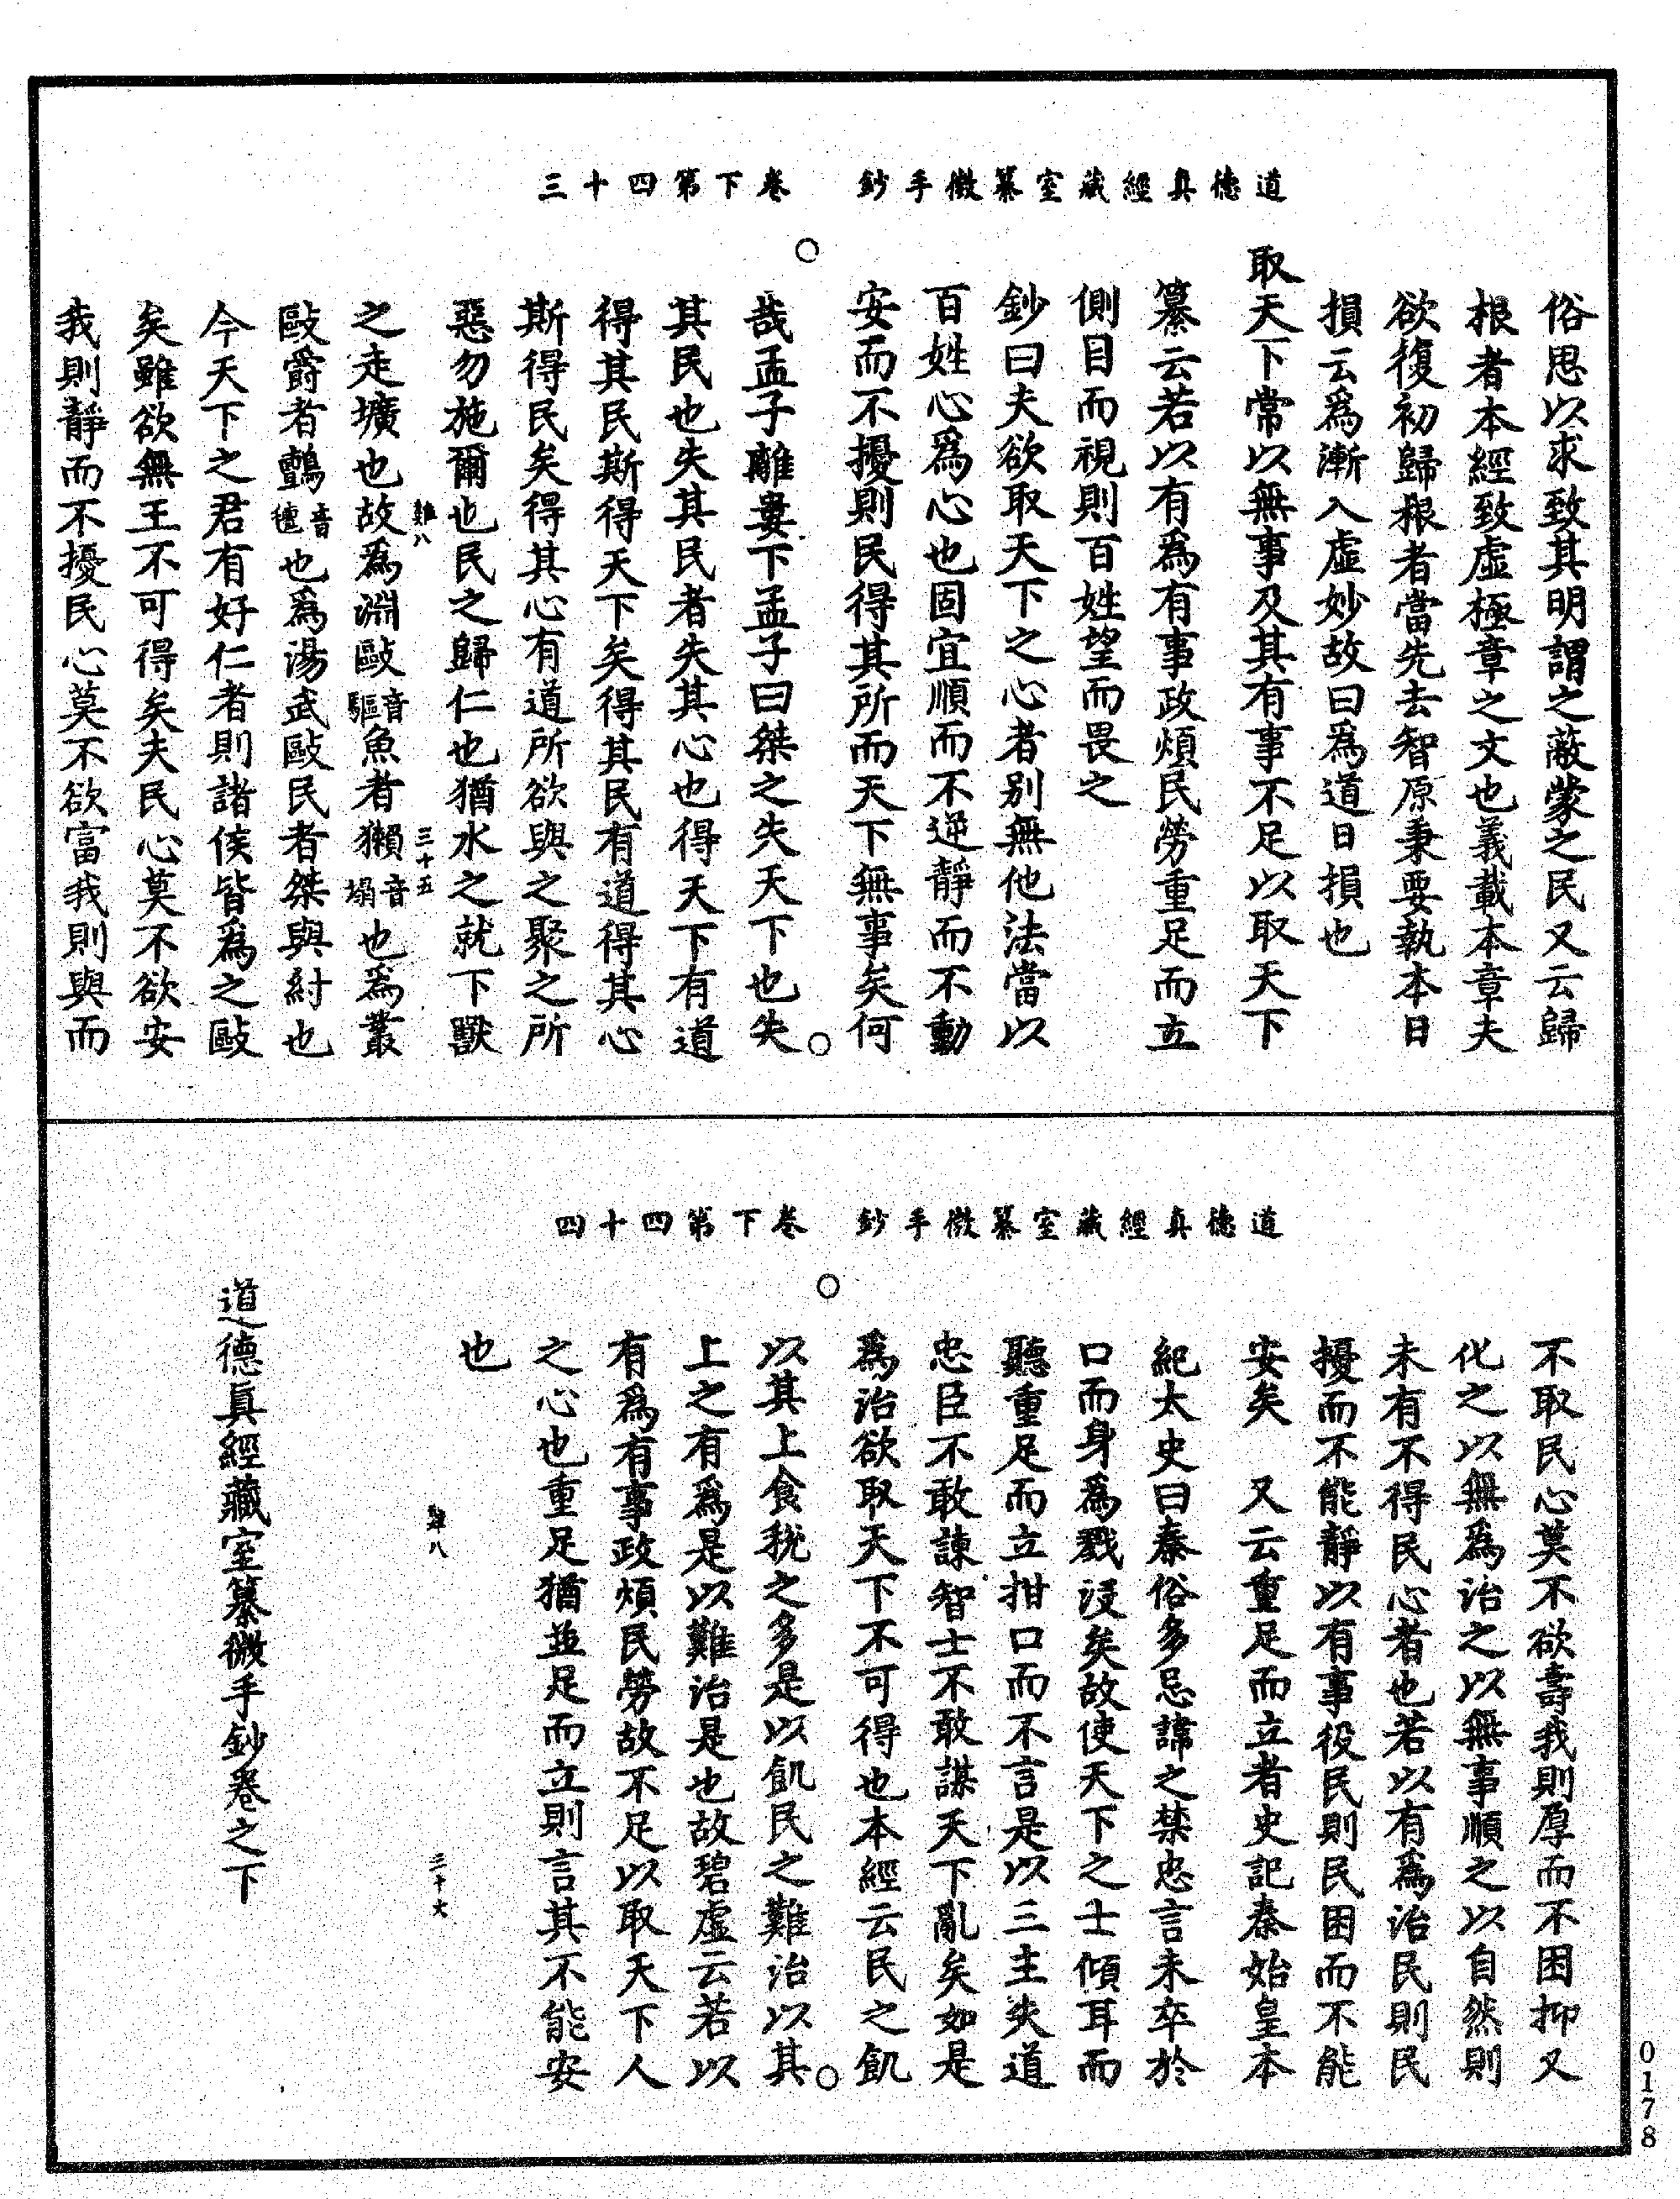 道德真經藏室纂微手鈔　卷下第四十三
俗思以求致其明謂之蔽蒙之民又云歸
根者本經致虛極章之文也義載本章夫
欲復初歸根者當先去智原秉要執本日
損云為漸入虛妙故曰為道日損也
取天下常以無事及其有事不足以取天下
纂云若以有為有事政煩民勞重足而立
側目而視則百姓望而畏之
鈔曰夫欲取天下之心者別無他法當以
百姓心為心也固宜順而不逆靜而不動
安而不擾則民得其所而天下無事矣何
哉孟子離婁下孟子曰桀之失天下也失
其民也失其民者失其心也得天下有道
得其民斯得天下矣得其民有道得其心
斯得民矣得其心有道所欲與之聚之所
惡勿施爾也民之歸仁也猶水之就下獸
難八　三十五
之走壙也故為淵敺音驅魚者獺音塌也為叢
敺爵者鸇音氊也為湯武敺民者桀與紂也
今天下之君有好仁者則諸侯皆為之敺
矣雖欲無王不可得矣夫民心莫不欲安
我則靜而不擾民心莫不欲富我則與而
道德真經藏室纂微手鈔　卷下第四十四
不取民心莫不欲壽我則厚而不困抑又
化之以無為治之以無事順之以自然則
未有不得民心者也若以有為治民則民
擾而不能靜以有事役民則民困而不能
安矣　又云重足而立者史記秦始皇本
紀太史曰秦俗多忌諱之禁忠言未卒於
口而身為戮沒矣故使天下之士傾耳而
聽重足而立拑口而不言是以三主失道
忠臣不敢諫智士不敢謀天下亂矣如是
為治欲取天下不可得也本經云民之飢
以其上食稅之多是以飢民之難治以其
上之有為是以難治是也故碧虛云若以
有為有事政煩民勞故不足以取天下人
之心也重足猶並足而立則言其不能安
也
難八　三十六
道德真經藏室纂微手鈔卷之下
0178